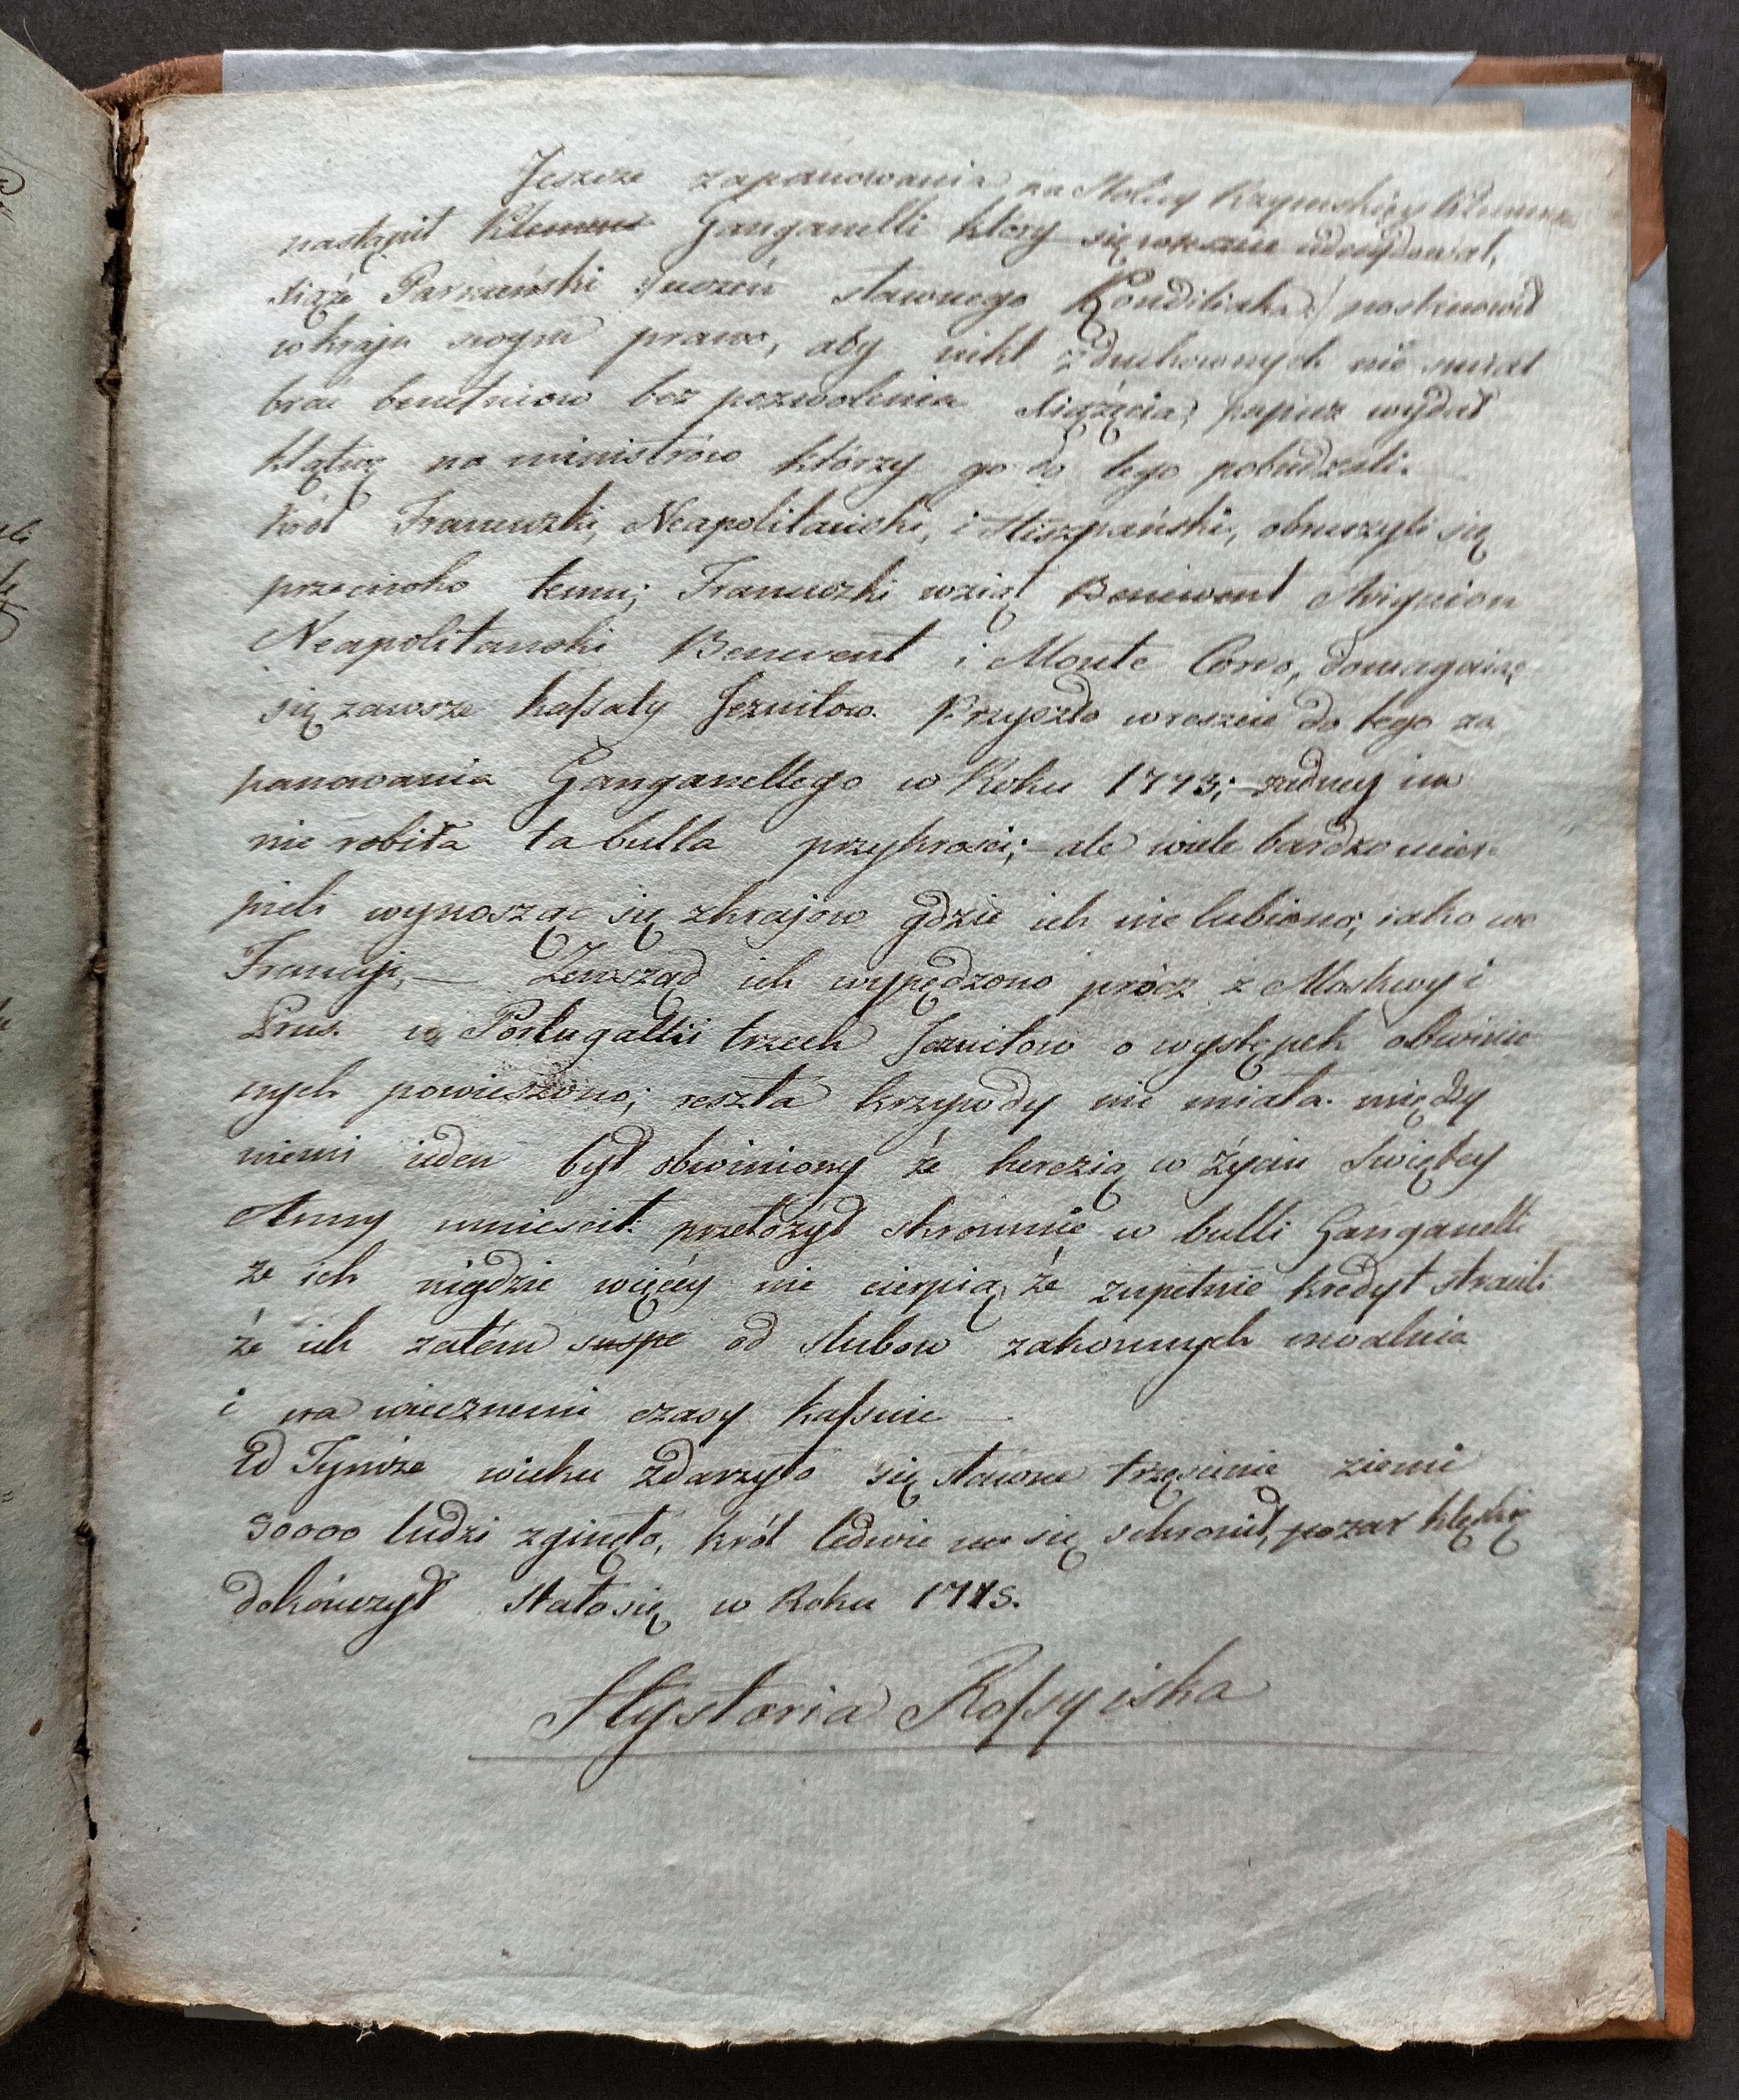 Jeszcze zapanowania na Stolicy Rzymskiey Klemensa
nastąpił Klemens Ganganelli który się wreszcie
Xiąże Parmeński /uczeń sławnego Kondiliaka:/ postanowił
w kraju swoym prawo, aby nikt z duchownych nie smiał
brać benefniow bez pozwolenia Xiążęcia; papież wydał
klątwę na ministrów którzy go do tego pobudzali.
Król Francuzki, Neapolitański, i Hiszpański, obruszyli się
przeciwko temu; Francuzki wziął Benewent Awignion
Neapolitanski Benewent i Monte Corvo, domagaiąc
się zawsze kassaty Jezuitow. Przyszło wreszcie do tego za
panowania Ganganellego w Roku 1773; żadney im
nie robiła ta bulla przykrosci; ale wiele bardzo ucier-
pieli wynosząc się zkrajow gdzie ich nie lubiono; iako we
Francyi, — Zewsząd ich wypędzono prócz z Moskwy i
Prus. w Portugallii trzech Jezuitow o występek obwinio
nych powieszono; reszta krzywdy nie miała. między
niemi ieden był obwiniony że herezią w życiu Swiętey
Anny umiescił: przełożył skromnie w bulli Ganganelli
że ich nigdzie więcéy nie cierpią, że zupełnie kredyt stracili
że ich zatem suspe od slubow zakonnych uwalnia
i na wiecznemi czasy kassuie —
Tymże wieku zdarzyło się sławne trzęsienie ziemi
30000 ludzi zginęło, król ledwie sie się schronił, pozar klęskę
dokończył Stało się w Roku 1775.
Hystoria Rossyiska